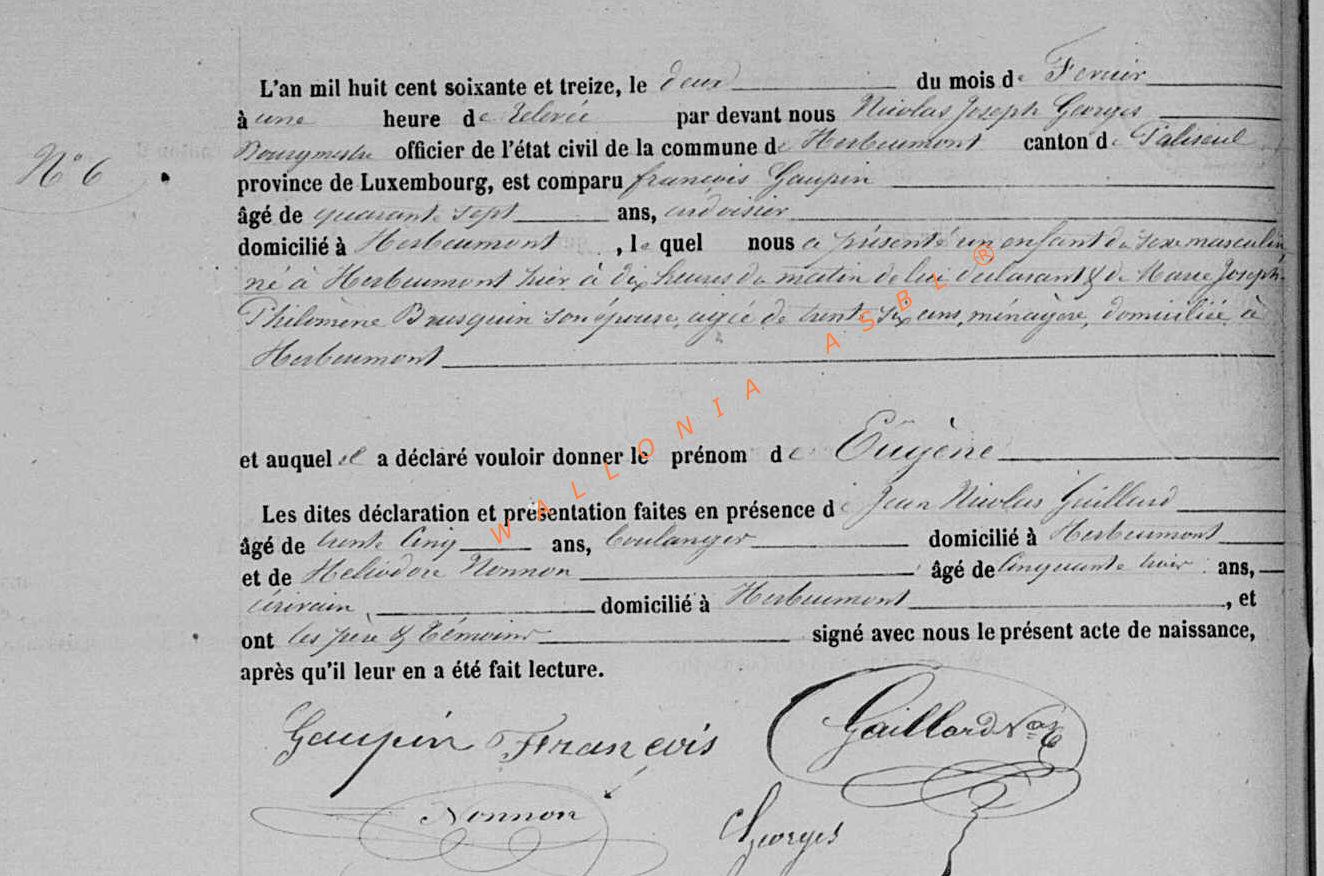 L'an mil huit cent soixante et treize, le deux du mois de Fevrier
à une heure de relevée par devant nous Nicolas Joseph Georges
N° 6
Bourgmestre officier de l'état civil de la commune de Herbeumont canton de Paliseul
province de Luxembourg, est comparu françois Gaupin
âgé de quarante sept ans, ardoisier
domicilié à Herbeumont, le quel nous a présenté un enfant du sexe masculin
né à Herbeumont hier à dix heures du matin de lui déclarant & de Marie Joseph
Philomène Brusquin son épouse, agée de trente six ans, ménagère, domiciliée à
Herbeumont
et auquel il a déclaré vouloir donner le prénom de Eugène
Les dites déclaration et présentation faites en présence de Jean Nicolas Gaillard
âgé de trente cinq ans, boulanger domicilié à Herbeumont
et de Heliodore Nonnon âgé de Cinquante trois ans,
écrivain, domicilié à Herbeumont, et
ont les père & témoins signé avec nous le présent acte de naissance,
après qu'il leur en a été fait lecture.
Gaupin François
Gaillard Nas
Nonnon
Georges
WALLONIA ASBL ®